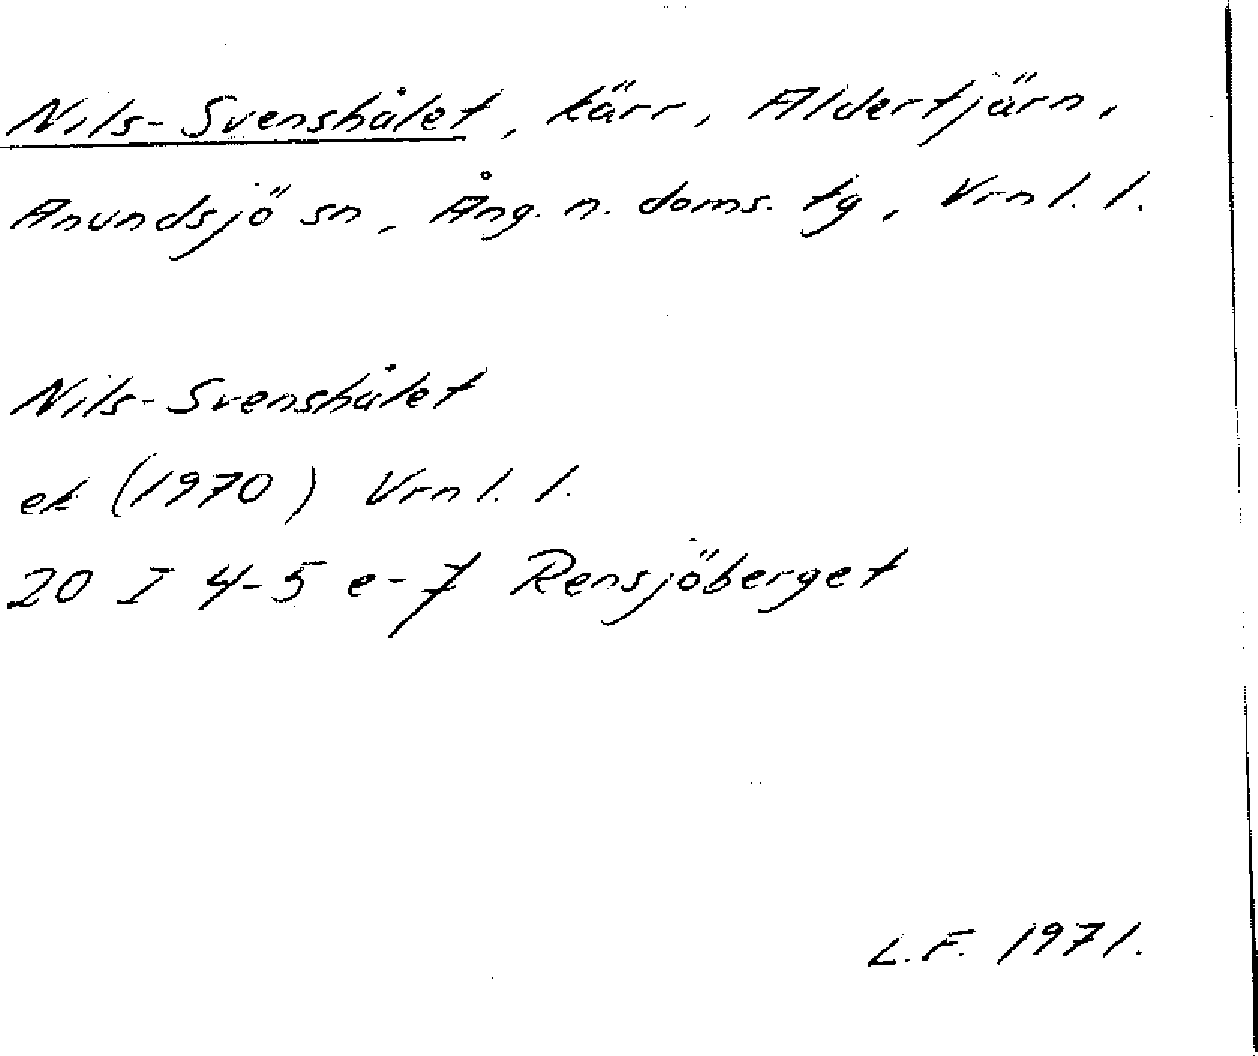 Nils-Svenshålet, kärr, Aldertjärn,
Anundsjö sn, Ång. n. doms. tg, Vrnl. l.
Nils-Svenshålet
ek (1970) Vrnl. l.
20 I 4-5 e-f Rensjöberget
L.F. 1971.